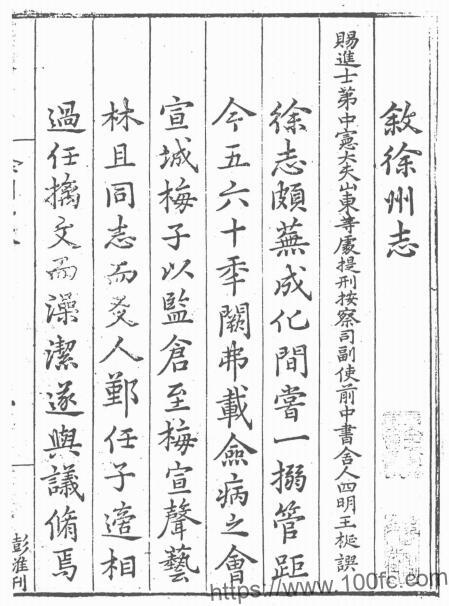 敘徐州志
賜進士第中憲大夫山東等處提刑按察司副使前中書舍人四明王梴譔
徐志頗蕪成化間嘗一搦管距
今五六十秊闕弗載僉病之會
宣城梅子以監倉至梅宣聲藝
林且同志而友人鄞任子適相
過任摛文而澡潔遂與議脩焉
彭淮刊
https://www.100fc.com